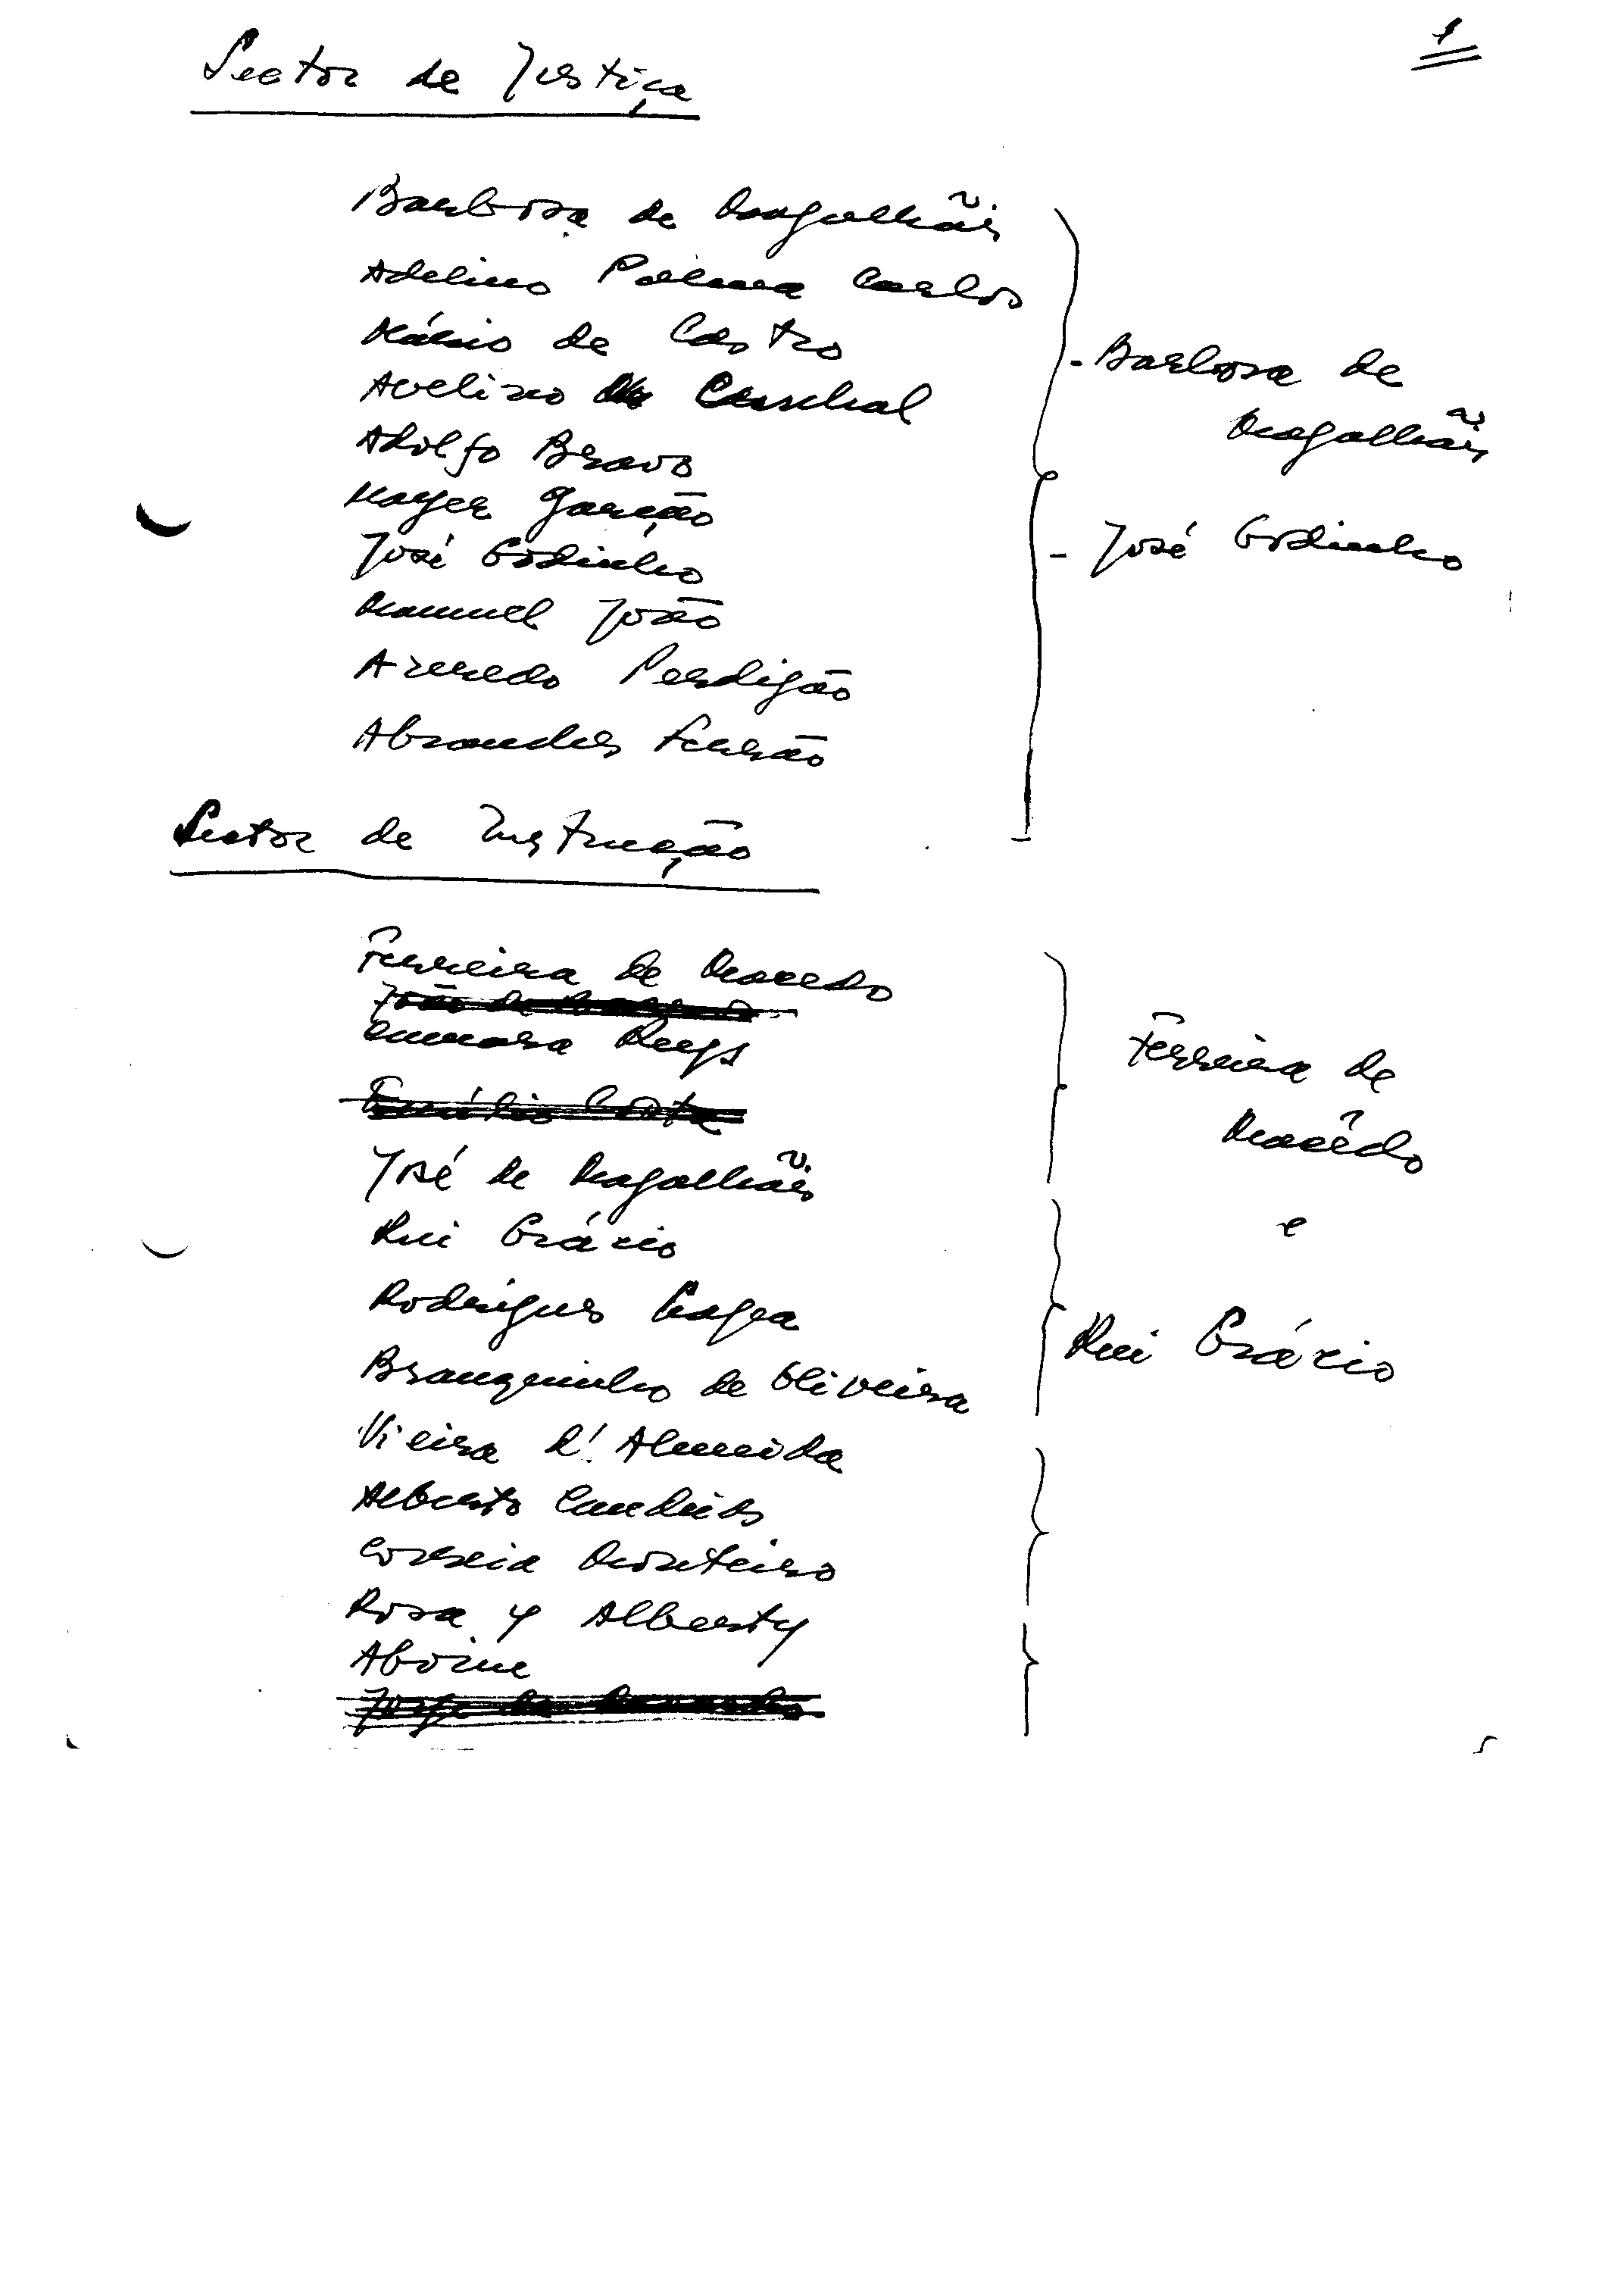 1
Sector de Justiça
Barbosa de Magalhães
Adelino Palma Carlos
Mário de Castro
Avelino Cunhal
Adolfo Bravo
Mayer Garção
José Godinho
Manuel João
Azeredo Perdigão
Abranches Ferrão
- Barbosa de
Magalhães
- José Godinho
Sector de Instrução
Ferreira de Macedo
João de
Câmara Reys
Emílio Costa
José de Magalhães
Rui Grácio
Rodrigues Lapa
Branquinho de Oliveira
Vieira d'Almeida
Alberto Candeias
Correia Monteiro
Rosa y Alberty
Aboim
Jorge de Macedo
Ferreira de
Macêdo
e
Rui Grácio